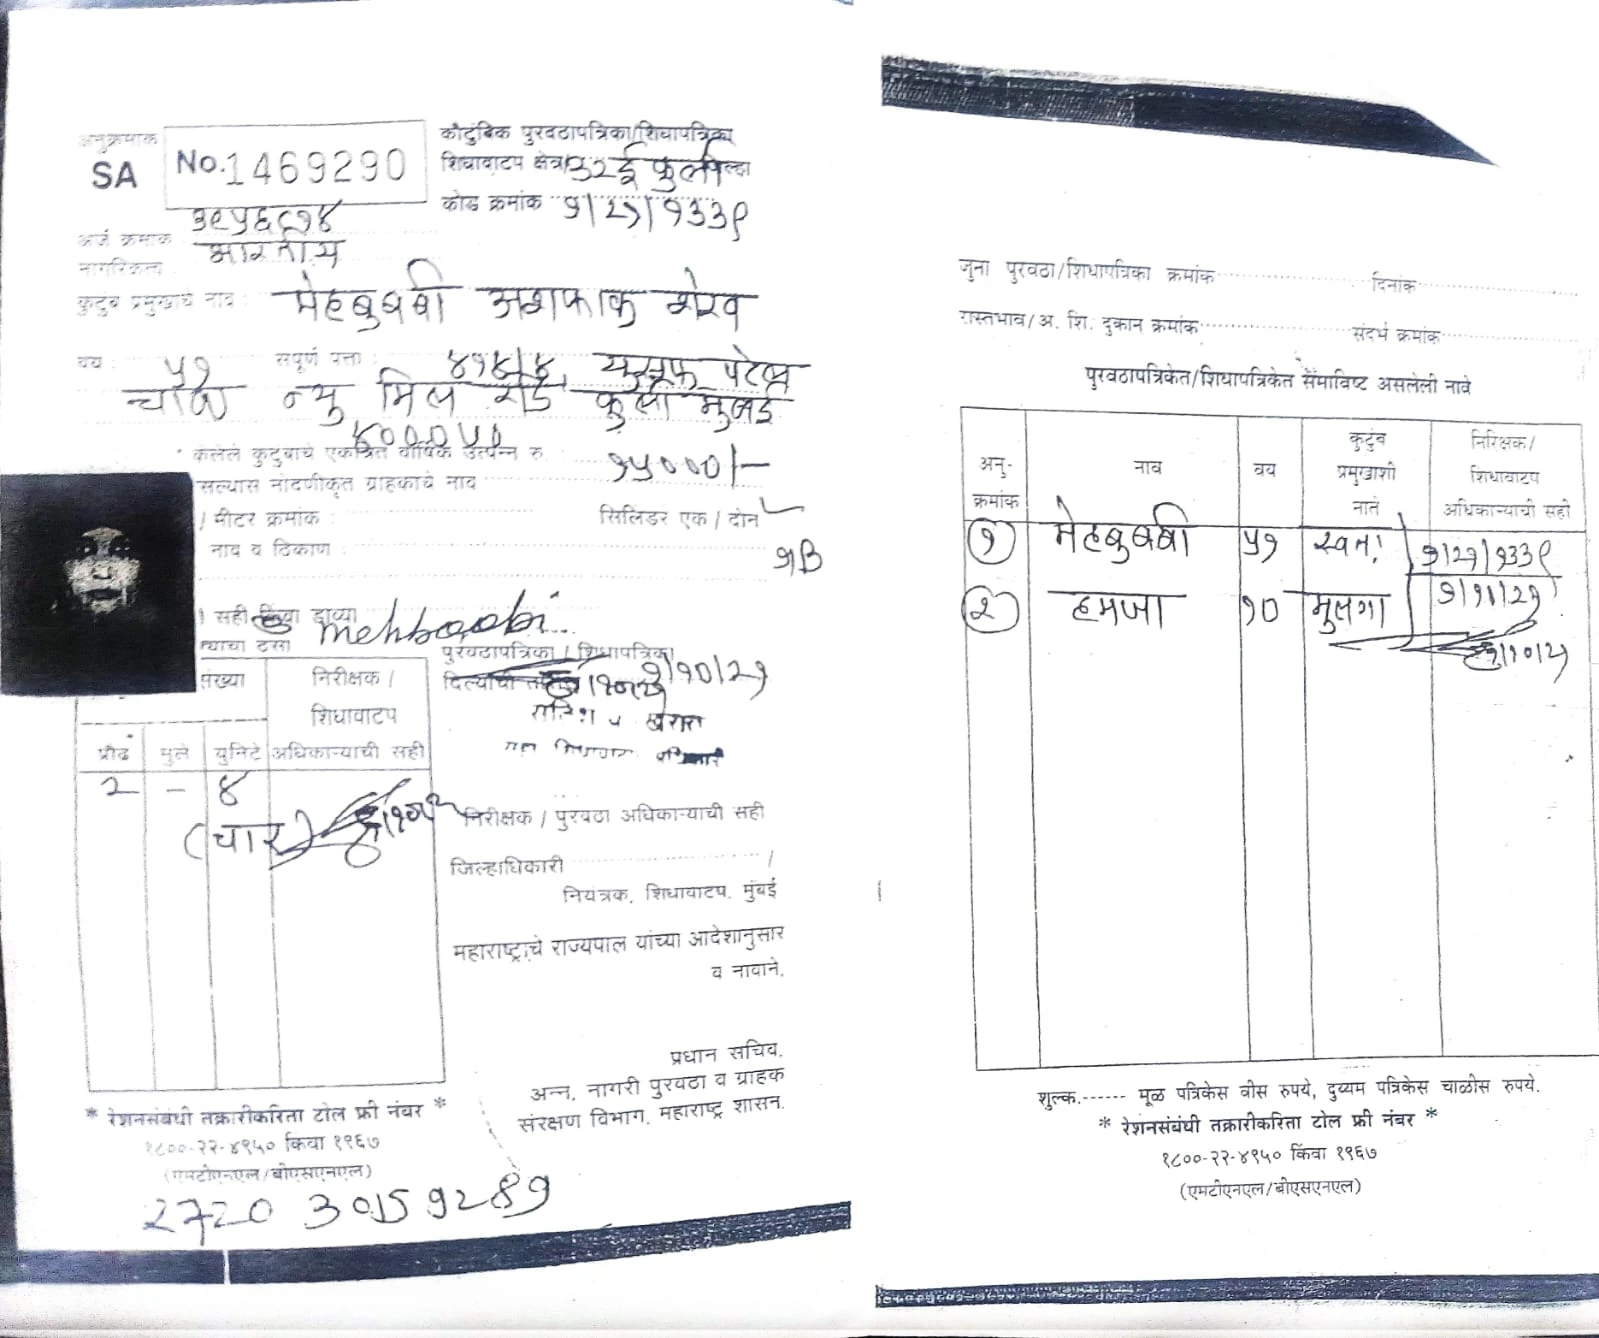 अनुक्रमांक
SA No. 1469290
कौटुंबिक पुरवठापत्रिका/शिधापत्रिका
शिधावाटप क्षेत्र/ ३२ई कुर्ला जिल्हा
कोड क्रमांक १/२१/१३३९
अर्ज क्रमांक
नागरिकत्व भारतीय
कुटुंब प्रमुखाचे नाव : मेहबुबबी अशफाक शेख
वय : ५१ संपूर्ण पत्ता : युसूफ पटेल
चाळ न्यु मिल रोड कुर्ला मुंबई
केलेले कुटुंबाचे एकत्रित वार्षिक उत्पन्न रु. १५०००/-
सल्यास नोंदणीकृत ग्राहकाचे नाव
/ मीटर क्रमांक : सिलिंडर एक / दोन
नाव व ठिकाण :
सही किंवा डाव्या mehboobi
त्याचा ठसा
पुरवठापत्रिका / शिधापत्रिका
दिल्याची १/१०/२१
संख्या निरीक्षक /
शिधावाटप
प्रौढ मुले युनिटे अधिकाऱ्याची सही
2 - ४
(चार)
निरीक्षक / पुरवठा अधिकाऱ्याची सही
जिल्हाधिकारी /
नियंत्रक, शिधावाटप, मुंबई
महाराष्ट्राचे राज्यपाल यांच्या आदेशानुसार
व नावाने,
प्रधान सचिव,
अन्न, नागरी पुरवठा व ग्राहक
संरक्षण विभाग, महाराष्ट्र शासन.
* रेशनसंबंधी तक्रारीकरिता टोल फ्री नंबर *
१८००-२२-४९५० किंवा १९६७
(एमटीएनएल/बीएसएनएल)
जुना पुरवठा/शिधापत्रिका क्रमांक दिनांक
रास्तभाव/अ. शि. दुकान क्रमांक संदर्भ क्रमांक
पुरवठापत्रिकेत/शिधापत्रिकेत समाविष्ट असलेली नावे
अनु-
क्रमांक नाव वय कुटुंब
प्रमुखाशी
नाते निरिक्षक/
शिधावाटप
अधिकाऱ्याची सही
१ मेहबुबबी ५१ स्वतः १/२१/१३३९
२ हमजा १० मुलगा १/१०/२१
शुल्क.------ मूळ पत्रिकेस वीस रुपये, दुय्यम पत्रिकेस चाळीस रुपये.
* रेशनसंबंधी तक्रारीकरिता टोल फ्री नंबर *
१८००-२२-४९५० किंवा १९६७
(एमटीएनएल/बीएसएनएल)